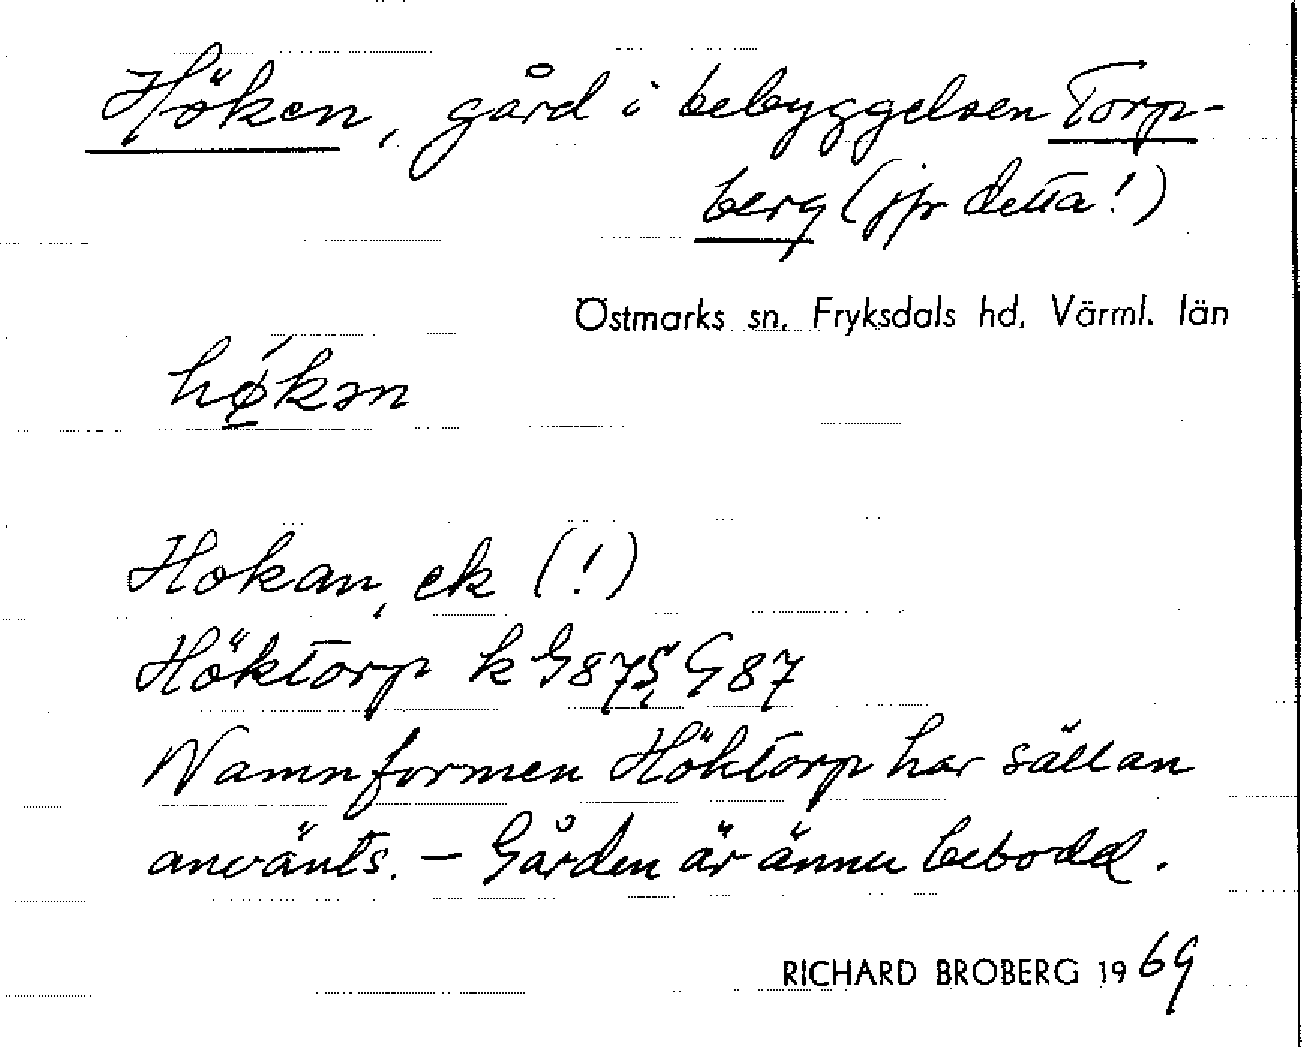 Höken, gård i bebyggelsen Torp-
berg (jfr detta!)
Östmarks sn. Fryksdals hd. Värml. län
hǿ̨kən
Hokan, ek (!)
Höktorp k G 87 S, G 87
Namnformen Höktorp har sällan
använts. – Gården är ännu bebodd.
RICHARD BROBERG 1969